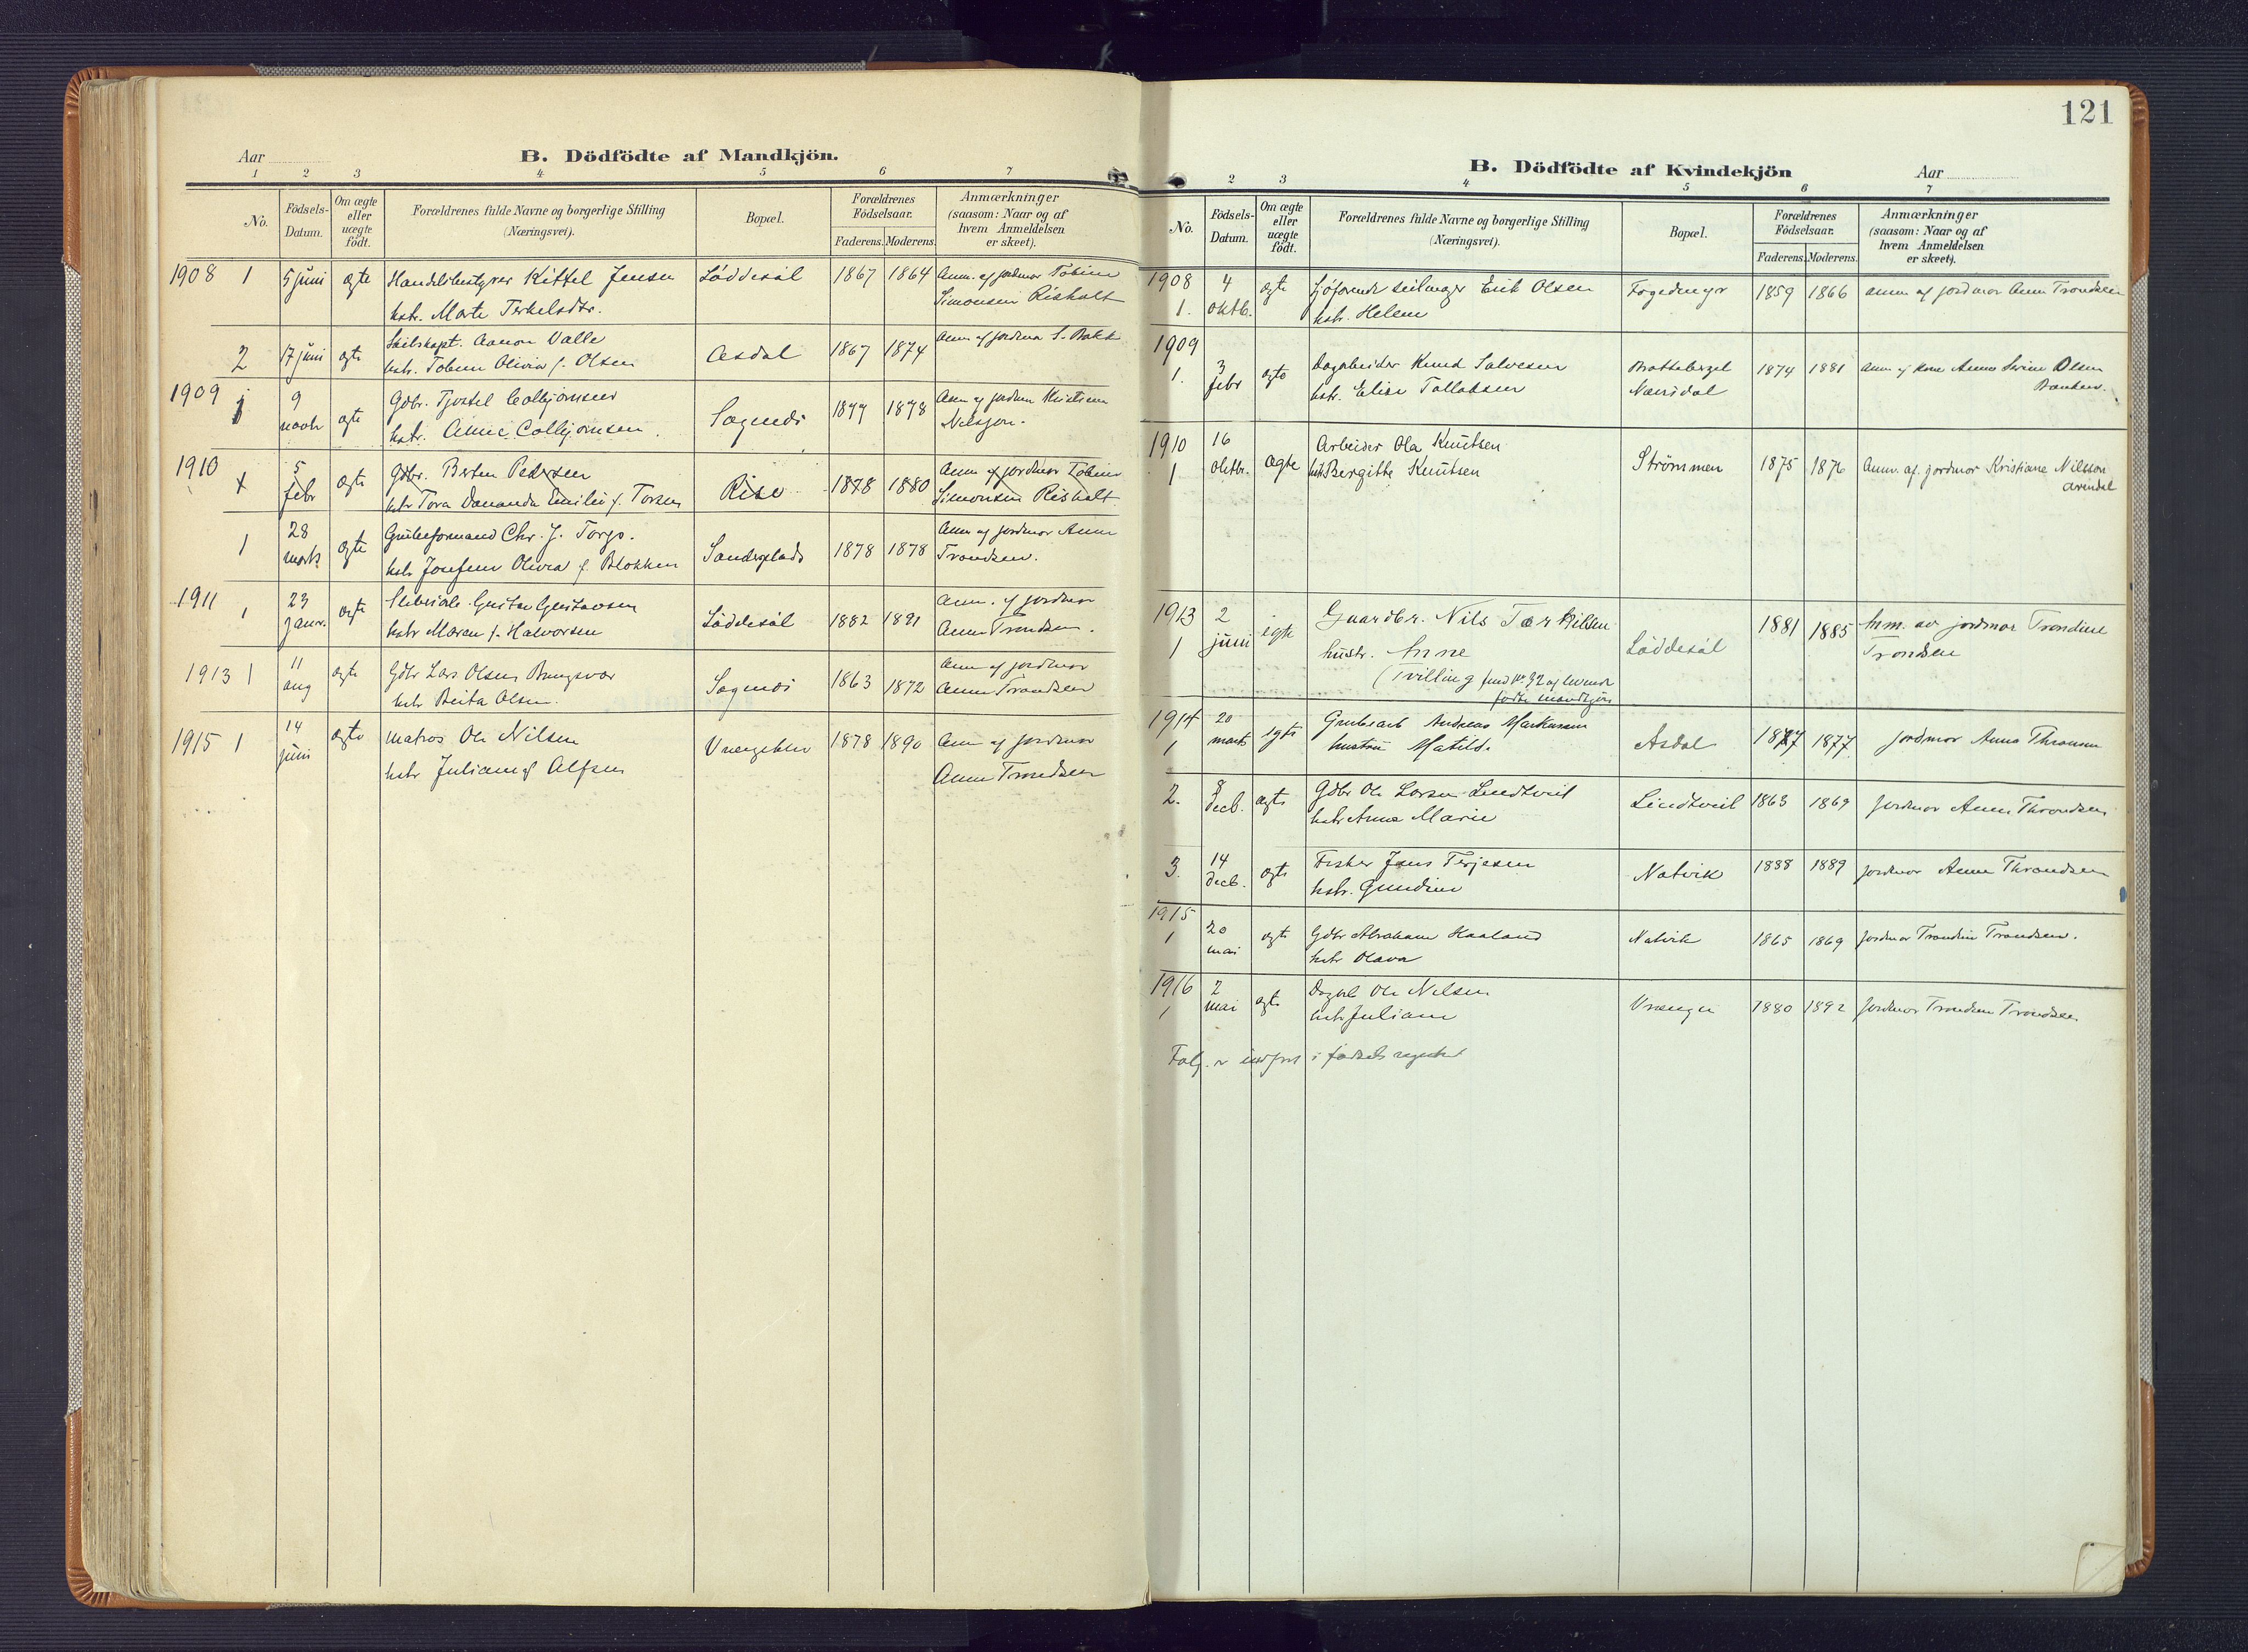 Aar
B. Dödfödte af Mandkjön.
1 2 3 4 5 6 7
No.
Födsels-
Datum.
Om ægte
eller
uægte
födt.
Forældrenes fulde Navne og borgerlige Stilling
(Næringsvei).
Bopæl.
Forældrenes
Födselsaar.
Faderens. Moderens.
Anmærkninger
(saasom: Naar og af
hvem Anmeldelsen
er skeet).
1908 1 5 juni ægte Handelsbestyrer Kittel Jensen Löddesöl 1867 1864 Anm. af jordmor Tobine
hstr. Marte Terkelsdtr. Simonsen Risholt
2 17 juni ægte Skibskapt. Aanon Valle Asdal 1867 1874 Anm af jordmor S. Bakk
hstr. Tobine Olivia f. Olsen
1909 1 9 ægte Gdbr. Tjostel Colbjørnsen 1877 1878 Anm af jordm Kristiane
hstr. Anne Colbjørnsen Nilsson.
1910 5 febr ægte Gdbr. Berten Pedersen Rise 1878 1880 Anm af jordmor Tobine
hstr Tora Emilie f. Torsen Simonsen Risholt
1 28 marts ægte Grubeformand Chr. J. Torgs. Sanderplads 1878 1878 Anm af jordmor Anne
hstr Josefine Olivia f. Blokken Trondsen.
1911 1 23 januar. ægte Gustav Gustavsen Löddesöl 1882 1891 Anm. af jordmor
hstr Maren f. Halvorsen Anne Trondsen.
1913 1 11 aug ægte Gdbr Lars Olsen 1863 1872 Anm af jordmor
hstr Berta Olsen. Anne Trondsen
1915 1 14 juni ægte Matros Ole Nilsen 1878 1890 Anm af jordmor
hstr Juliane f Alfsen Anne Trondsen
121
B. Dödfödte af Kvindekjön
Aar
2 3 4 5 6 7
No.
Födsels-
Datum.
Om ægte
eller
uægte
födt.
Forældrenes fulde Navne og borgerlige Stilling
(Næringsvei).
Bopæl.
Forældrenes
Födselsaar.
Faderens. Moderens.
Anmærkninger
(saasom: Naar og af
hvem Anmeldelsen
er skeet).
1908 4 ægte Sjøfarende seilmager Erik Olsen Fogedmyr 1859 1866 anm af jordmor Anne Trondsen
1. oktb. hstr. Helene
1909
1. 3 febr ægte Dagarbeider Knud Salvesen 1874 1881 anm af Anne Serine Olsen
hstr. Elise Tallaksen Næsdal
1910 16 Arbeider Ola Knutsen
1 oktbr. ægte hstr Bergitte Knutsen Strömmen 1875 1876 Anm. af. jordmor Kristiane Nilsson
Arendal
1913 2 ægte Gaardbr. Nils Terkilsen 1881 1885 Anm. av jordmor Trondine
1 juni hustr. Anne Löddesöl Trondsen
(Tvilling med No. 92 af levende
födte mandkjön
1914 20 ægte Grubearb Andreas Markussen
1 marts hustru Matilde Asdal 1877 1877 jordmor Anna Thronsen
2. 8 decb. ægte Gdbr Ole Larsen Lindtveit Lindtveit 1863 1869 Jordmor Anne Throndsen
hstr Anne Marie
3. 14 decb. ægte Fisker Jens Terjesen Natvik 1888 1889 jordmor Anne Throndsen
hstr. Gundine
1915
1 20 mai ægte Gdbr Abraham Haaland Natvik 1865 1869 Jordmor Trondine Trondsen.
hstr Olava
1916 2 Dagarb Ole Nilsen
1 mai ægte hstr Juliane 1880 1892 Jordmor Trondine Trondsen
i födsels